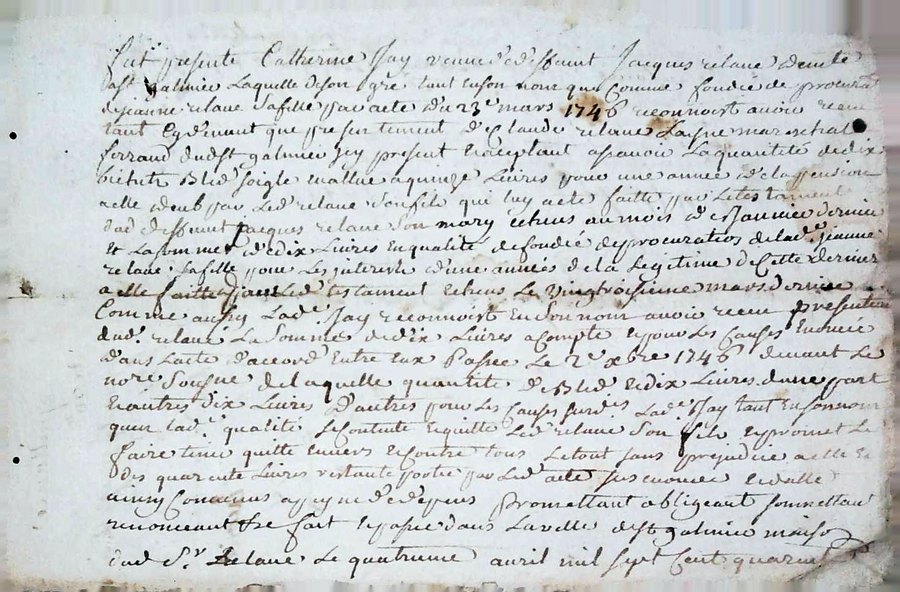 fut présente Catherine Jay veuve de deffunt Jacques relave de cette
de st galmier Laquelle de son gré tant en son nom que comme fondée de procura
de jeanne relave sa fille par acte du 23e mars 1746 reconnoist avoir receu
tant cy devant que presentement de Claude relave La sne mareschal
ferrand dudst galmier Jcy present et aceptant asçavoir La quantité de dix
bichets Bled soigle evallué a quinze Livres pour une année de la pension
a elle deub par Led relave son fils que luy a esté faitte par Le testament
dud deffunt jacques relave son mary echeus au mois de Janvier dernier
Et La somme de dix Livres en qualité de fondée de procuration de lade jeanne
relave sa fille pour Les interests d'une année de la Legitime de cette derniere
a elle faitte par Led testament echeus Le Vingtroisieme mars dernier
Comme aussy Lade Jay reconnoist en son nom avoir receu presentem
dudt relave La Somme de dix Livres a Compte et pour Les Causes Enoncée
dans L'acte d'acord Entre Eux Passée Le 2e xbre 1746 devant Le
nore Sousné de laquelle quantité de Bled et dix Livres d'une part
et autres dix Livres d'autres pour Les Causes surdes Lade Jay tant en son nom
qu'en lade qualité se contente et quitte Led relave son fils et promet Le
faire tenir quitte envers et contre tous Le tout sans prejudice a elle
des quarente Livres restante portée par Led acte sus enoncé
ainsy Convenus a peyne de depens promettant obligeant soumettant
renonceant fre fait et passé dans La ville de st galmier maison
dud Sr Relave Le quatrieme avril mil sept Cent quarente